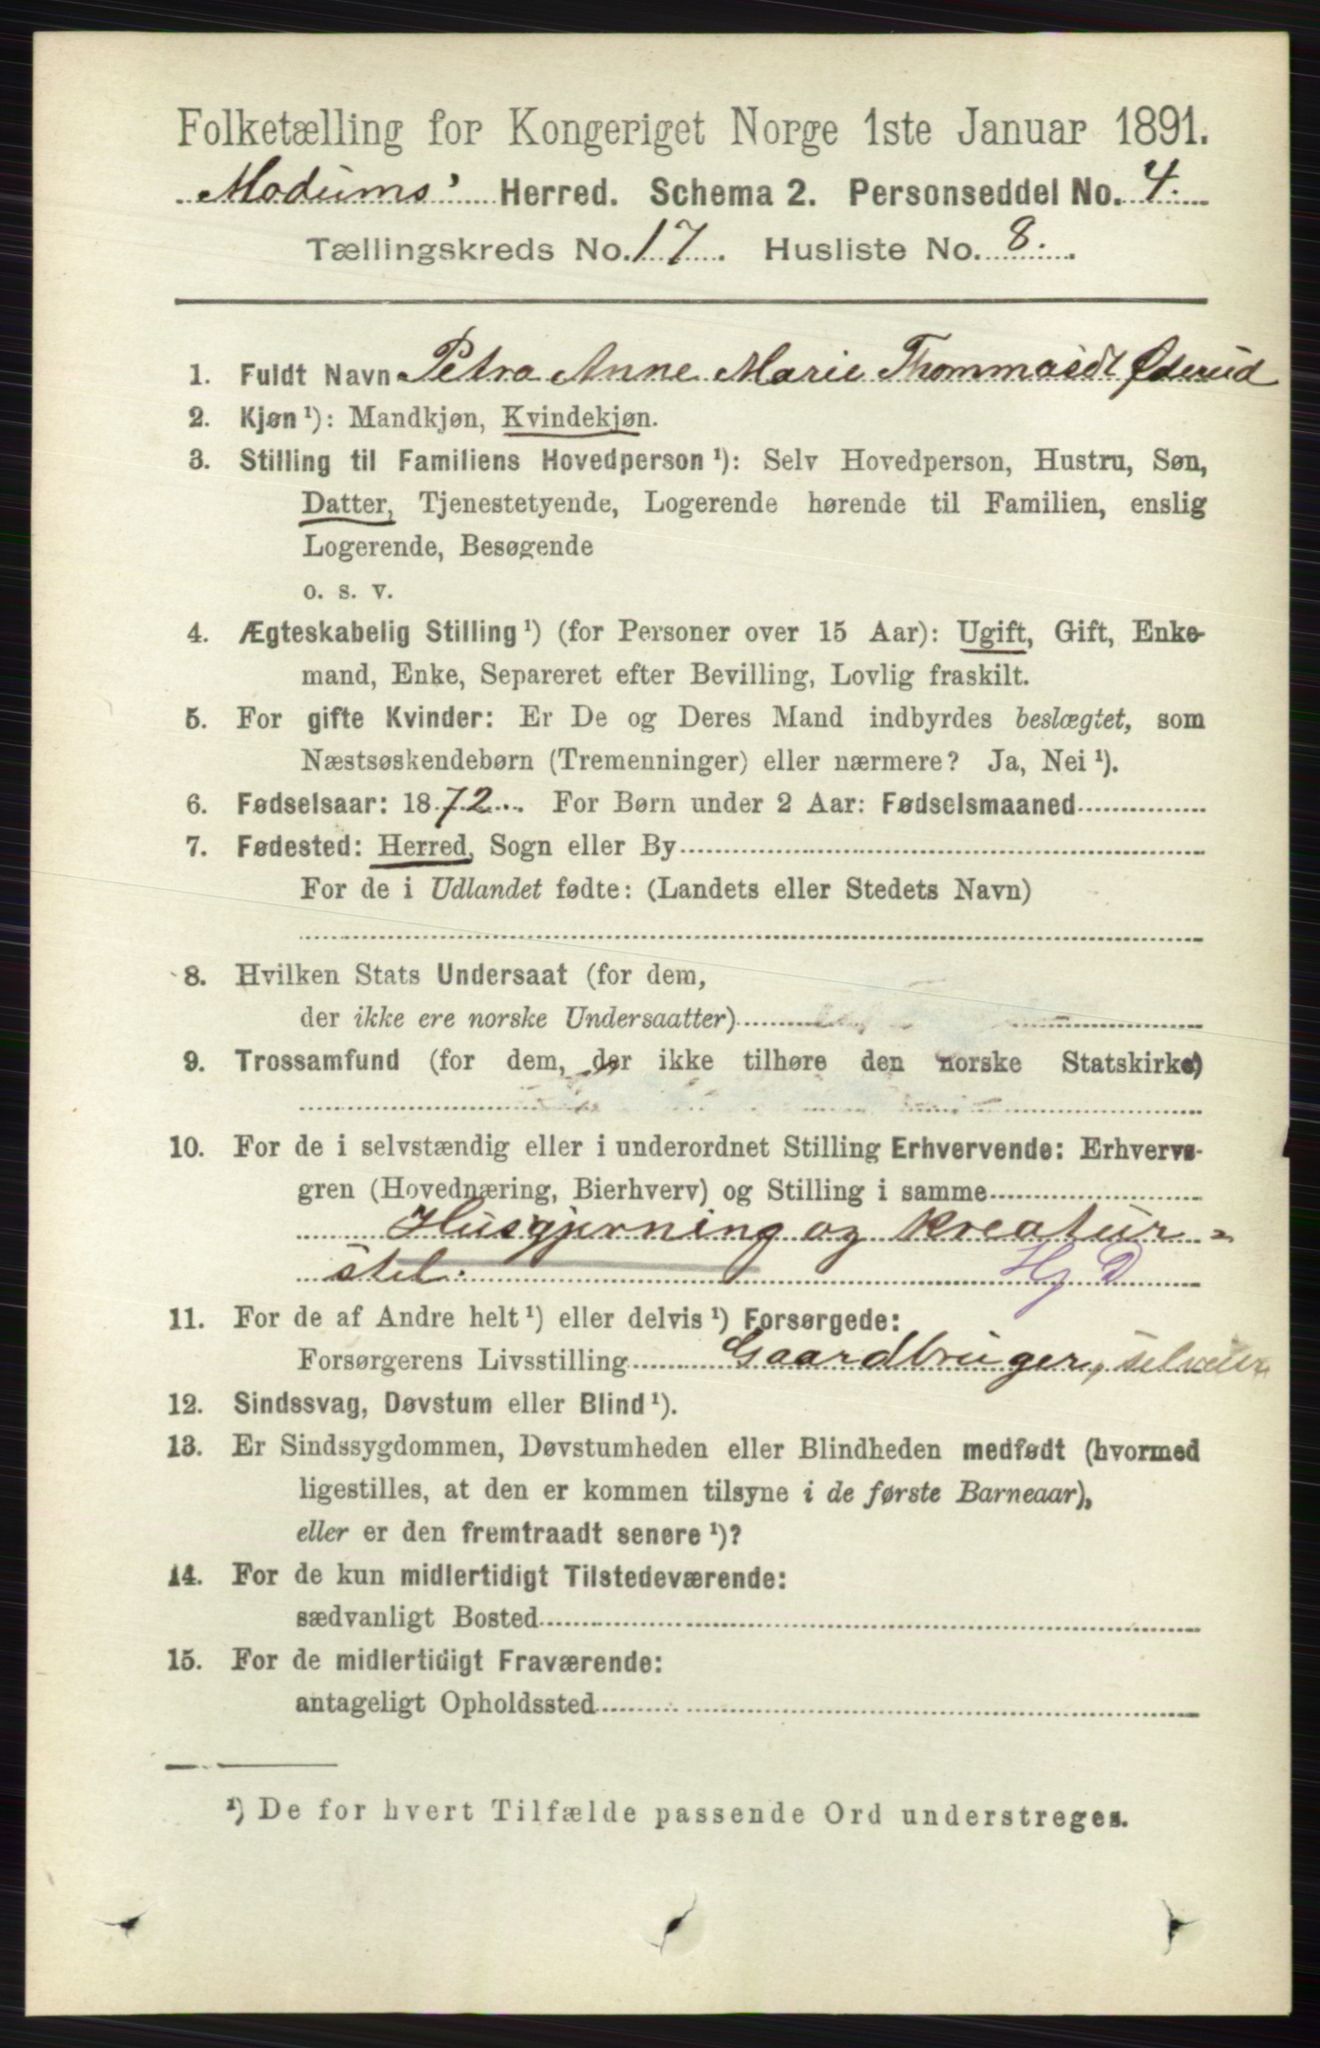 Folketælling for Kongeriget Norge 1ste Januar 1891.
Modums' Herred. Schema 2. Personseddel No. 4.
Tællingskreds No. 17. Husliste No. 8.
1. Fuldt Navn Petra Anne Marie Thommasdt Øderud
2. Kjøn¹): Mandkjøn, Kvindekjøn.
3. Stilling til Familiens Hovedperson¹): Selv Hovedperson, Hustru, Søn,
Datter, Tjenestetyende, Logerende hørende til Familien, enslig
Logerende, Besøgende
o. s. v.
4. Ægteskabelig Stilling¹) (for Personer over 15 Aar): Ugift, Gift, Enke-
mand, Enke, Separeret efter Bevilling, Lovlig fraskilt.
5. For gifte Kvinder: Er De og Deres Mand indbyrdes beslægtet, som
Næstsøskendebørn (Tremenninger) eller nærmere? Ja, Nei¹).
6. Fødselsaar: 1872. For Børn under 2 Aar: Fødselsmaaned
7. Fødested: Herred, Sogn eller By
For de i Udlandet fødte: (Landets eller Stedets Navn)
8. Hvilken Stats Undersaat (for dem,
der ikke ere norske Undersaatter)
9. Trossamfund (for dem, der ikke tilhøre den norske Statskirke)
10. For de i selvstændig eller i underordnet Stilling Erhvervende: Erhvervs-
gren (Hovednæring, Bierhverv) og Stilling i samme
Husgjerning og kreatur=
stel. Hj D
11. For de af Andre helt¹) eller delvis¹) Forsørgede:
Forsørgerens Livsstilling Gaardbruger, selveier
12. Sindssvag, Døvstum eller Blind¹).
13. Er Sindssygdommen, Døvstumheden eller Blindheden medfødt (hvormed
ligestilles, at den er kommen tilsyne i de første Barneaar),
eller er den fremtraadt senere¹)?
14. For de kun midlertidigt Tilstedeværende:
sædvanligt Bosted
15. For de midlertidigt Fraværende:
antageligt Opholdssted
¹) De for hvert Tilfælde passende Ord understreges.